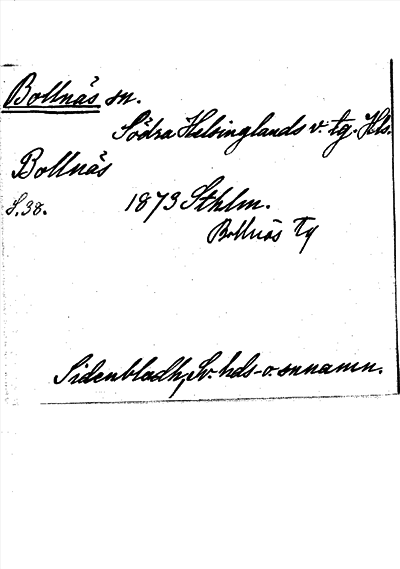 Bollnäs sn.
Södra Helsinglands v. tg. Hls.
Bollnäs
S. 38.
1873 Sthlm.
Bollnäs Tg
Sidenbladh, Sv. hds- o. snnamn.